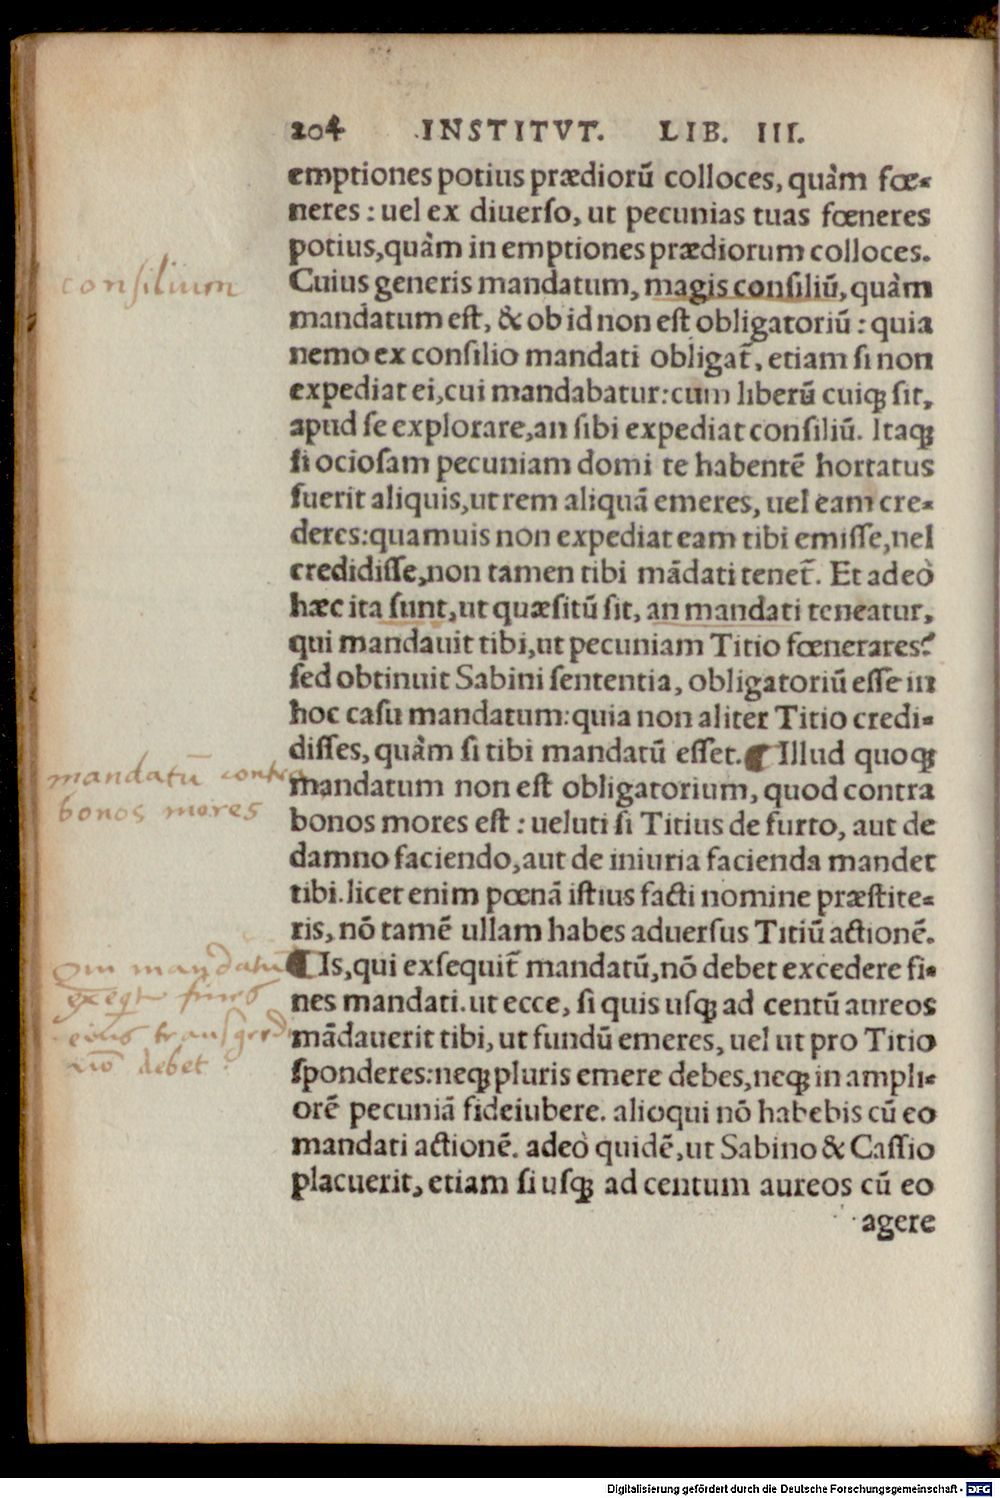 204 INSTITVT. LIB. III.
emptiones potius prædiorū colloces, quàm fœ-
neres : uel ex diuerſo, ut pecunias tuas fœneres
potius, quàm in emptiones prædiorum colloces.
consilium
Cuius generis mandatum, magis conſiliū, quàm
mandatum eſt, & ob id non eſt obligatoriū : quia
nemo ex conſilio mandati obligat̄, etiam ſi non
expediat ei, cui mandabatur: cum liberū cuiqꝫ ſit,
apud ſe explorare, an ſibi expediat conſiliū. Itaqꝫ
ſi ocioſam pecuniam domi te habentē hortatus
fuerit aliquis, ut rem aliquā emeres, uel eam cre-
deres: quamuis non expediat eam tibi emiſſe, nel
credidiſſe, non tamen tibi mādati tenet̄. Et adeò
hæc ita ſunt, ut quæſitū ſit, an mandati teneatur,
qui mandauit tibi, ut pecuniam Titio fœnerares?
ſed obtinuit Sabini ſententia, obligatoriū eſſe in
hoc caſu mandatum: quia non aliter Titio credi-
diſſes, quàm ſi tibi mandatū eſſet. ¶ Illud quoqꝫ
mandatū contra
bonos mores
mandatum non eſt obligatorium, quod contra
bonos mores eſt : ueluti ſi Titius de furto, aut de
damno faciendo, aut de iniuria facienda mandet
tibi. licet enim pœnā iſtius facti nomine præſtite-
ris, nō tamē ullam habes aduerſus Titiū actionē.
Qui mandatū
exeqt fines
eius transgredi
nō debet.
¶ Is, qui exſequit̄ mandatū, nō debet excedere fi-
nes mandati. ut ecce, ſi quis uſqꝫ ad centū aureos
mādauerit tibi, ut fundū emeres, uel ut pro Titio
ſponderes: neqꝫ pluris emere debes, neqꝫ in ampli-
orē pecuniā fideiubere. alioqui nō habebis cū eo
mandati actionē. adeò quidē, ut Sabino & Caſſio
placuerit, etiam ſi uſqꝫ ad centum aureos cū eo
agere
Digitalisierung gefördert durch die Deutsche Forschungsgemeinschaft - DFG